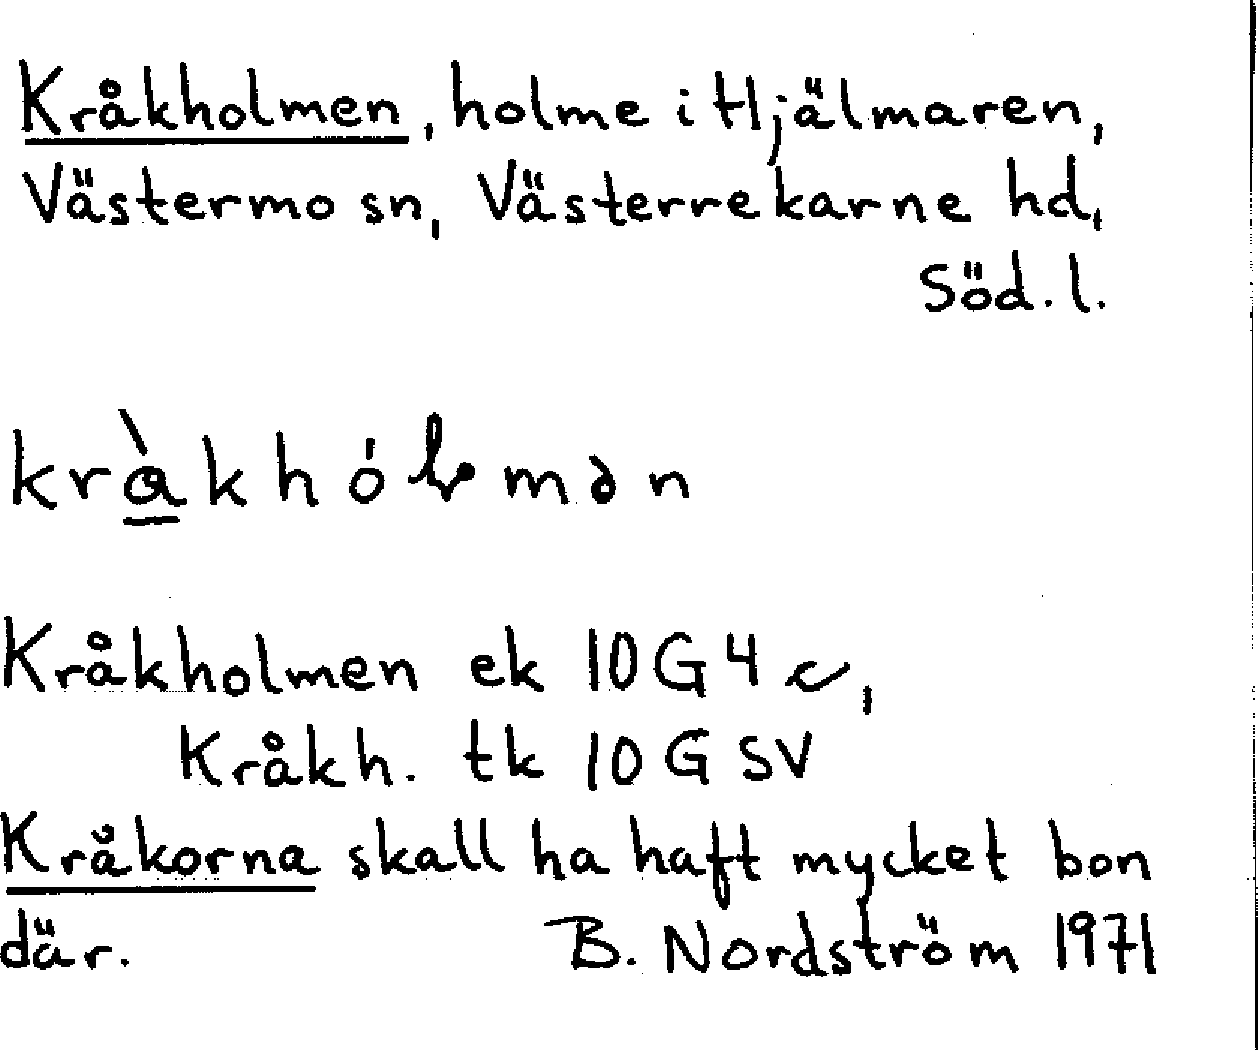 Kråkholmen, holme i Hjälmaren,
Västermo sn, Västerrekarne hd,
Söd. l.
Kråkholmen ek 10 G 4 c,
Kråkh. tk 10 G SV
Kråkorna skall ha haft mycket bon
där. B. Nordström 1971